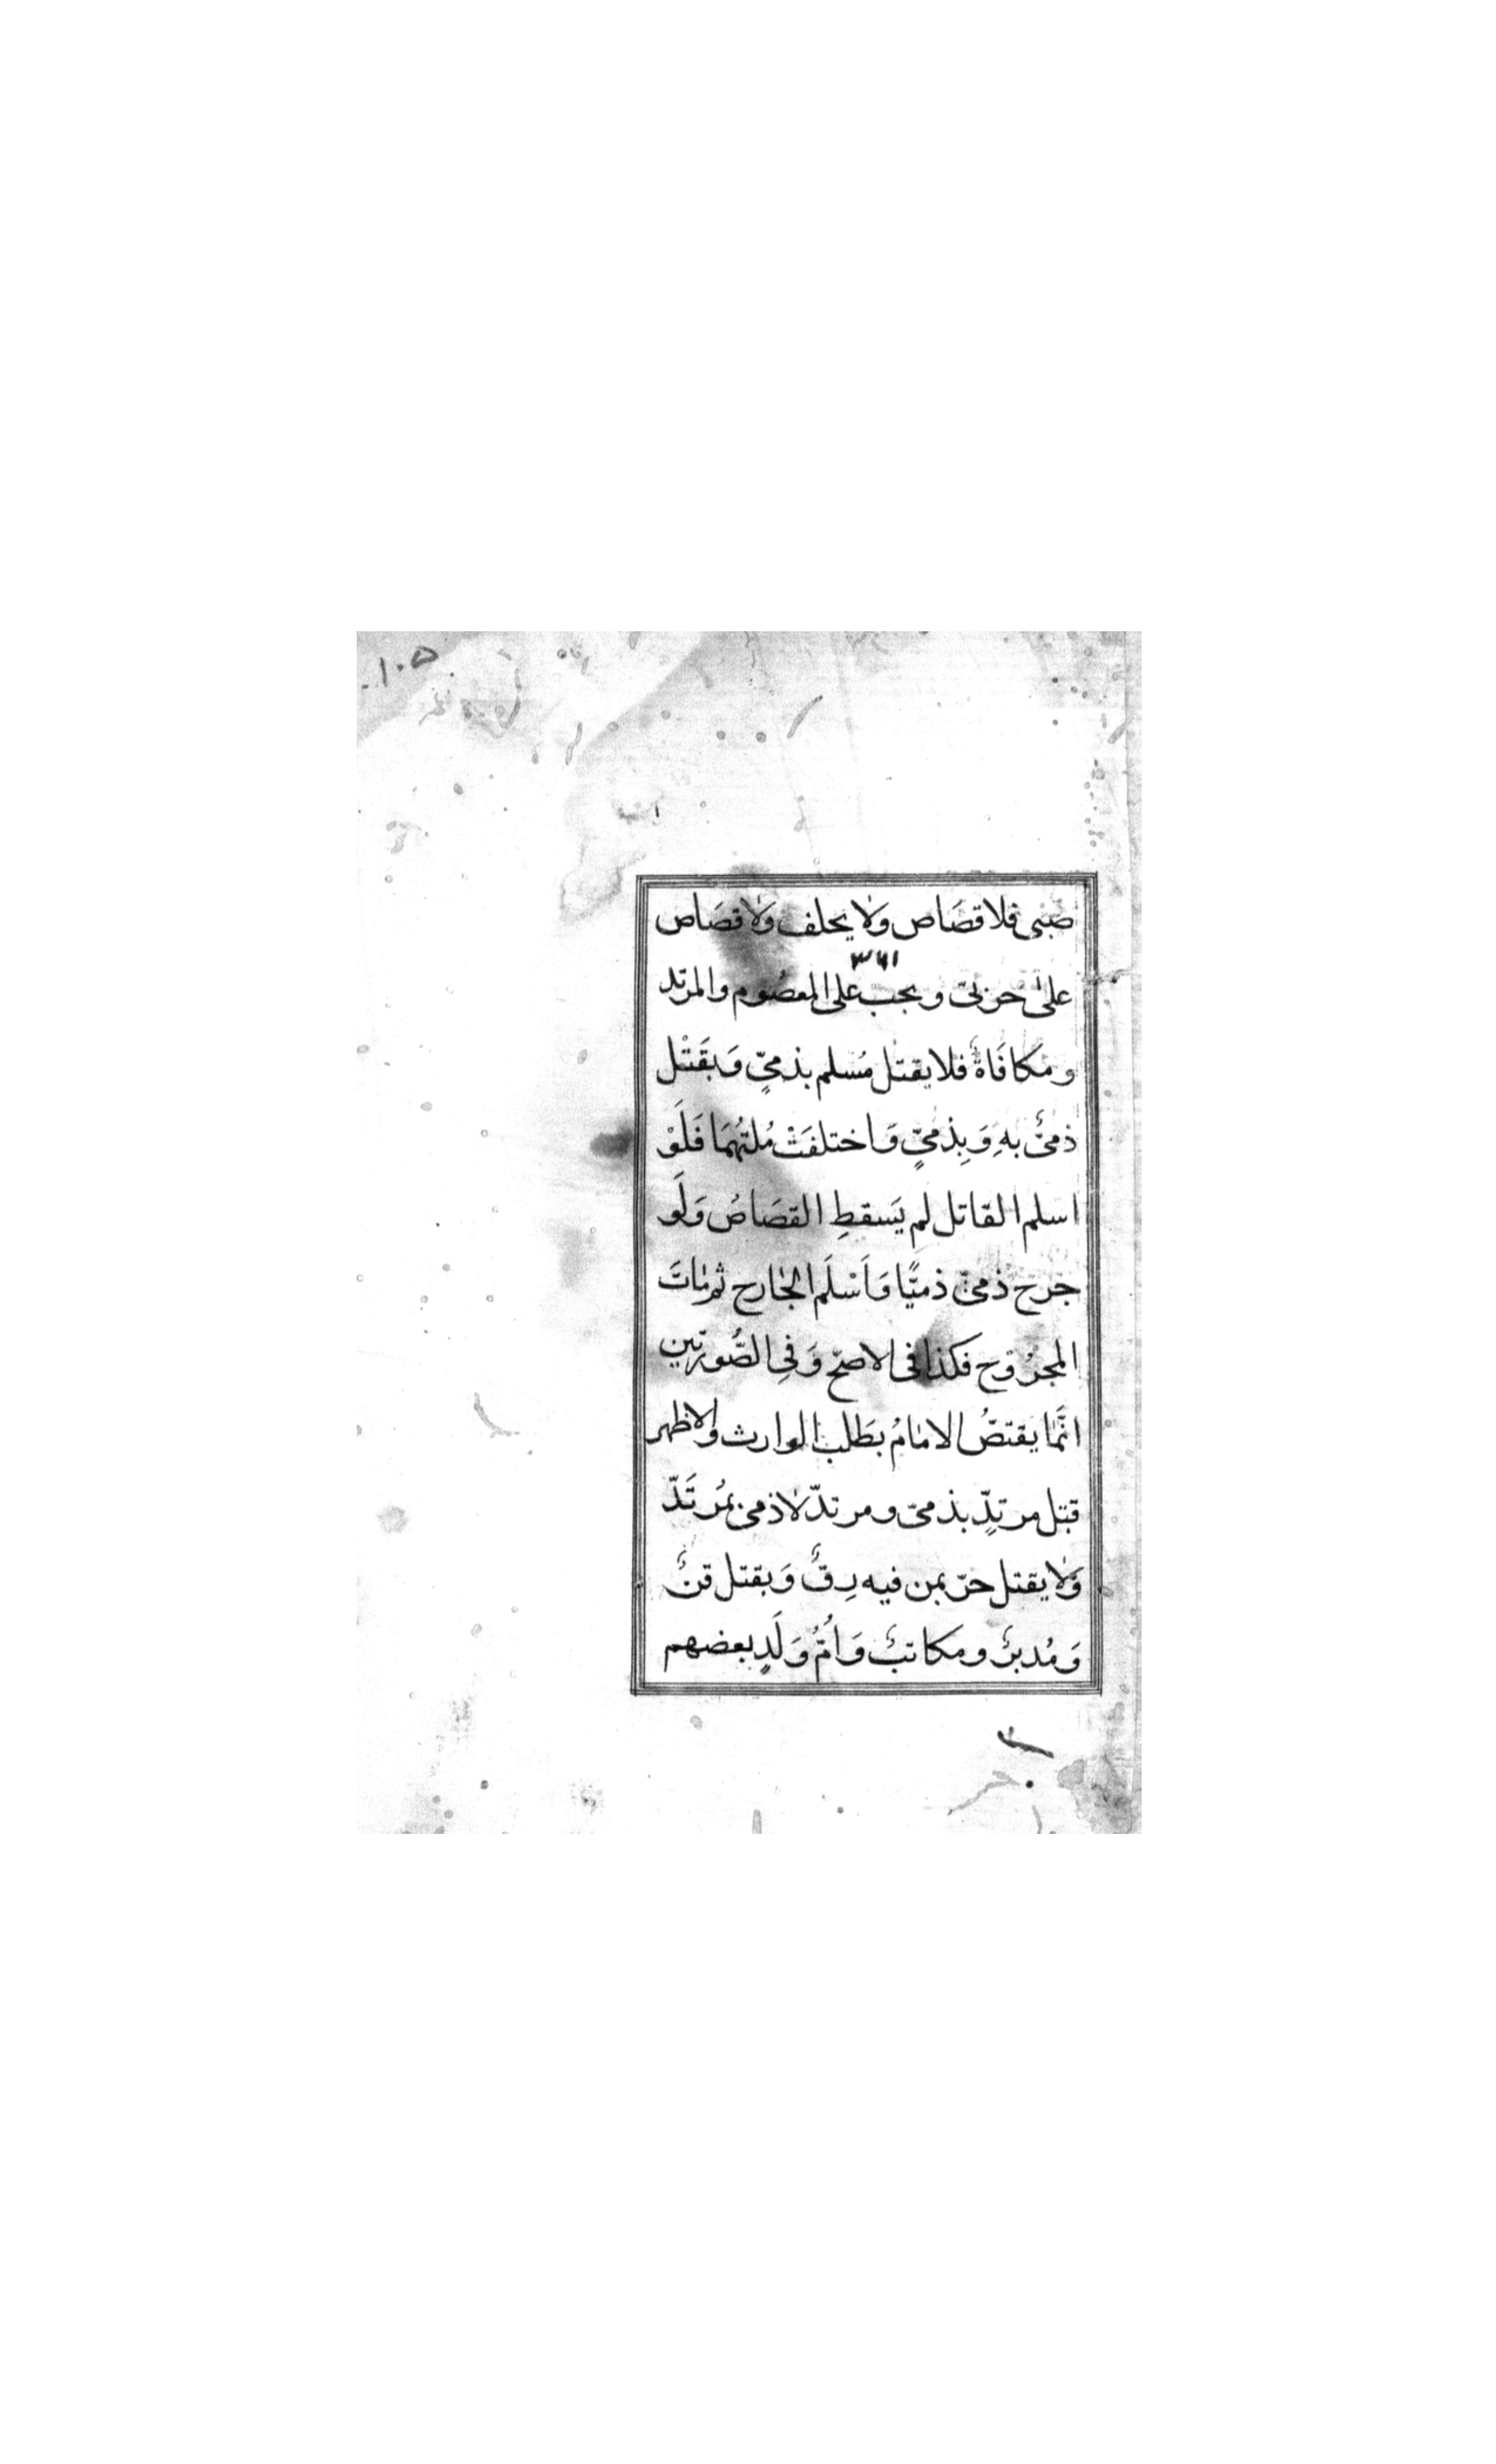 ١٠٥
صبى فلا قصَاص ولا يحلف ولا قصَاص
٣٦١
على حربىّ ويجب على المعصُوم والمرتد
ومكافَاةٌ فلا يقتل مُسلم بذمىٍّ وَيقَتْل
ذمىٌّ بهِ وَبِذمىٍّ وَاختلفَتْ مُلتهُمَا فَلَوْ
اسلم القاتل لم يَسقطِ القصَاصُ وَلَو
جرح ذمىّ ذميًّا وَاَسْلَم الجارح ثم مَاتَ
المجرُوح فكذا فى الاصحّ وَفىِ الصُّورتين
انَّما يقتصُّ الامامُ بطَلب الوارث والاظهر
قتل مرتدٍّ بذمىّ ومرتدّ لا ذمىّ بمُرتَدّ
وَلا يقتل حرّ بمن فيه رِقٌّ وَيقتل قنٌّ
وَمُدبرٌ ومكاتبٌ وَاُمُّ وَلَدٍ بعضهم